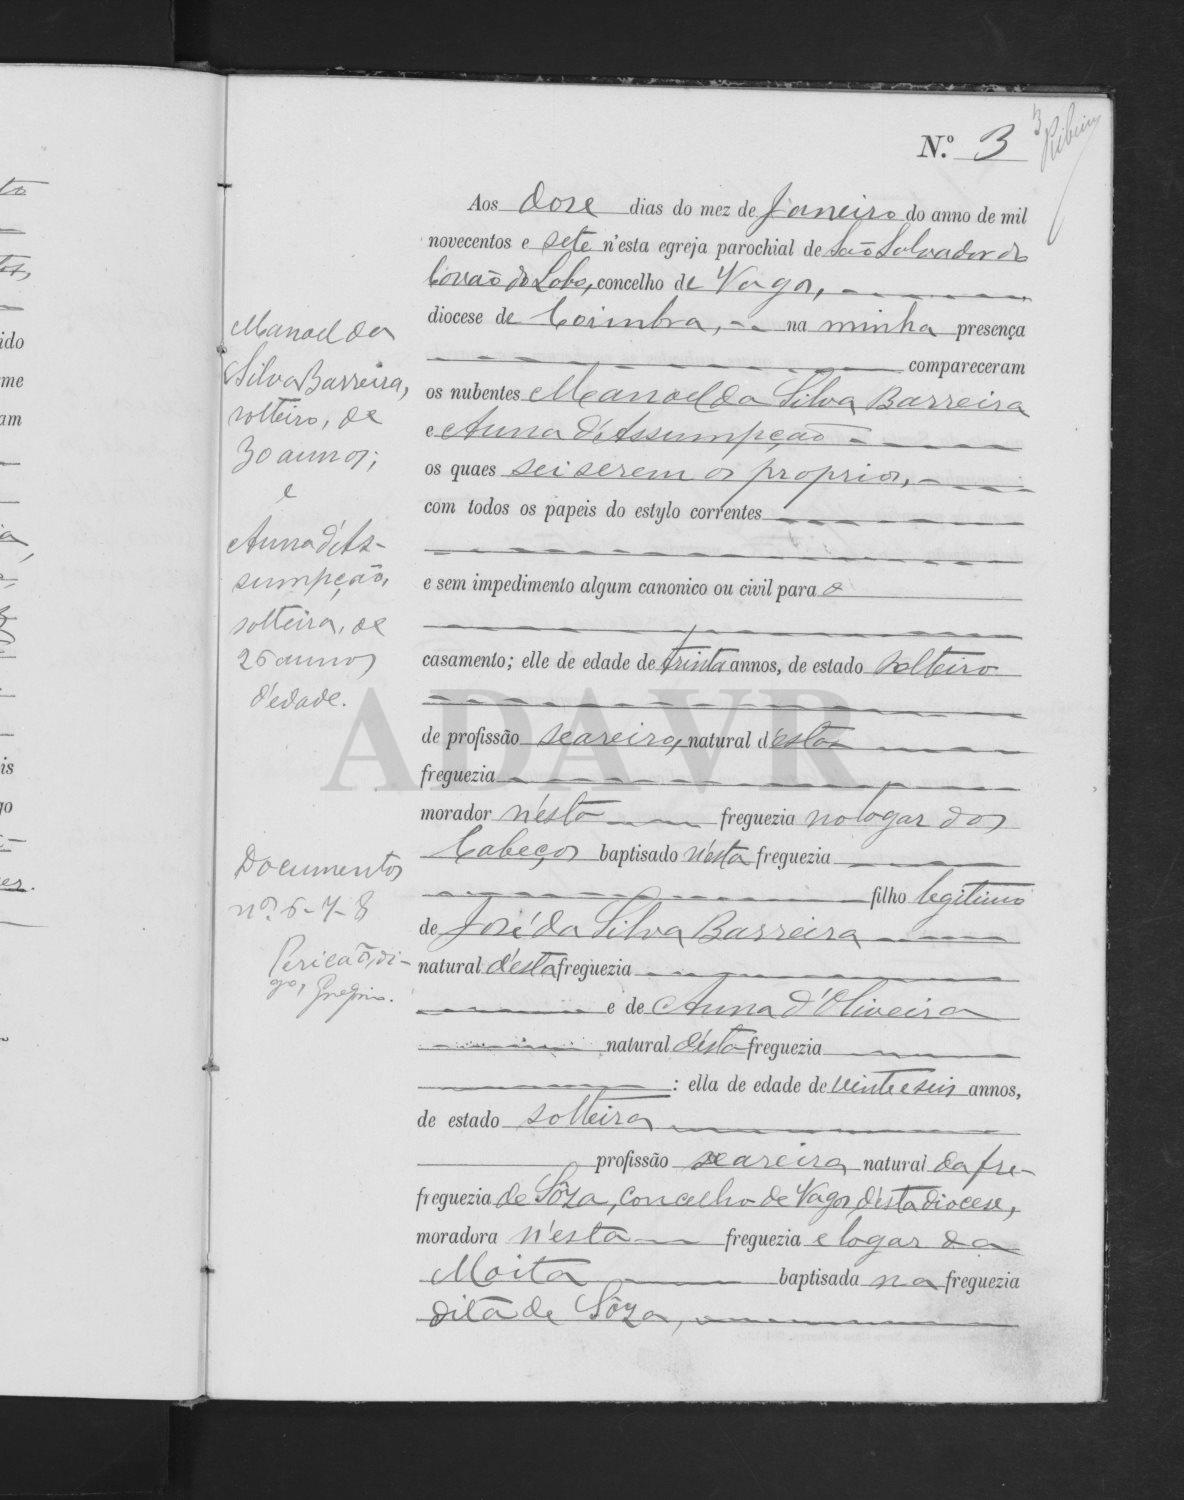 3
Ribeiro
N.º 3
Aos doze dias do mez de Janeiro do anno de mil
novecentos e sete n'esta egreja parochial de São Salvador do
Covão do Lobo, concelho de Vagos,
diocese de Coimbra, na minha presença
compareceram
os nubentes Manoel da Silva Barreira
e Anna d'Assumpção
os quaes sei serem os proprios,
com todos os papeis do estylo correntes
e sem impedimento algum canonico ou civil para o
casamento; elle de edade de trinta annos, de estado solteiro
de profissão seareiro, natural d'esta
freguezia
morador n'esta freguezia no logar dos
Cabeços baptisado n'esta freguezia
filho legitimo
de José da Silva Barreira
natural d'esta freguezia
e de Anna d'Oliveira
natural d'esta freguezia
: ella de edade de vinte e seis annos,
de estado solteira
profissão seareira natural da fre-
freguezia de Sôza, concelho de Vagos, d'esta diocese,
moradora n'esta freguezia e logar da
Moita baptisada na freguezia
dita de Sôza,
Manoel da
Silva Barreira,
solteiro, de
30 annos;
e
Anna d'As-
sumpção,
solteira, de
26 annos
d'edade.
Documentos
nº. 6-7-8
ADAVR
ido
me
am
is
go